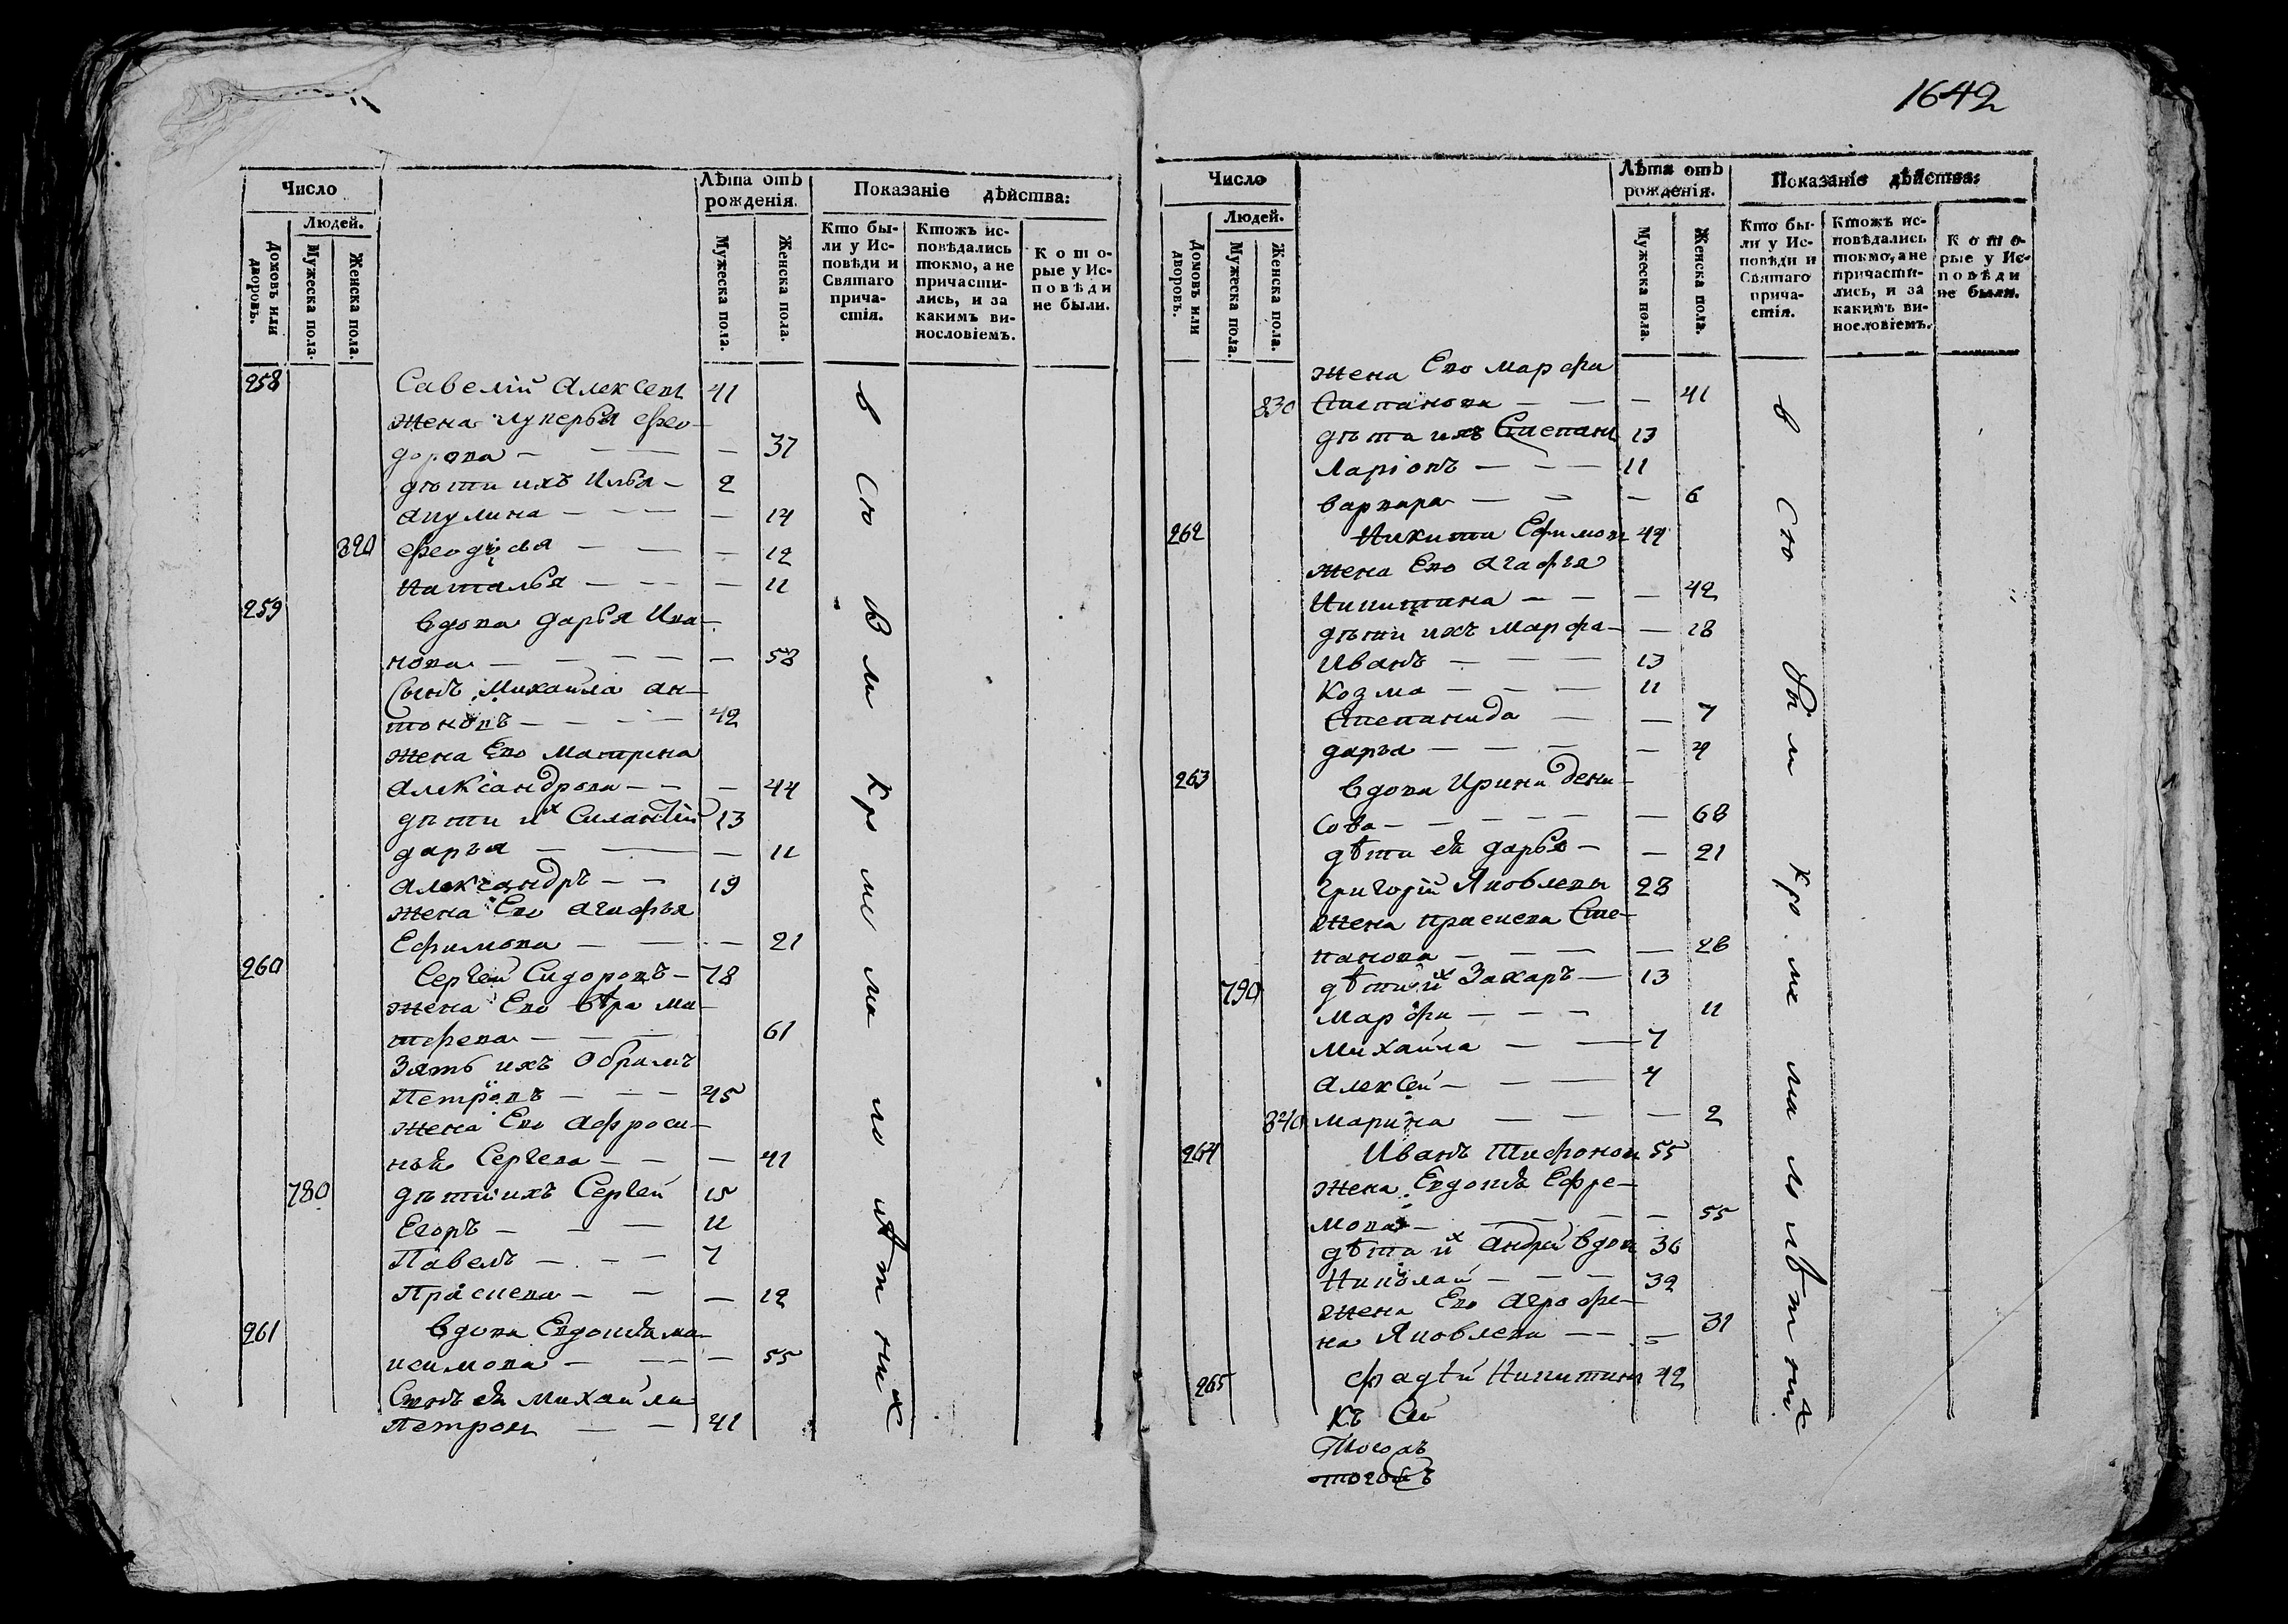 1642
Число
Людей.
Домовъ или дворовъ.
Мужеска пола.
Женска пола.
Лѣта отъ рожденія.
Мужеска пола.
Женска пола.
Показаніе дѣйства:
Кто бы-
ли у Ис-
повѣди и
Святаго
прича-
стія.
Ктожъ ис-
повѣдались
токмо, а не
причасти-
лись, и за
какимъ ви-
нословіемъ.
Кото-
рые у Ис-
повѣди
не были.
258 Савелій Алексеевъ 41
жена Лукерья Фео-
дорова — — — 37
дѣти ихъ Илья — 2
Акулина — — — 14
820 Феодосья — — — 12
Наталья — — — 11
259 вдова Дарья Ива-
нова — — — — 58
сынъ Михайла Ан-
тоновъ — — — 42
жена Ево Матрина
Александрова — — — 44
дѣти их Силантій 13
Дарья — — — 11
Александръ — — 19
жена Ево Агафья
Ефимова — — — 21
260 Сергей Сидоровъ — 78
жена Ево Вѣра Ма-
тфева — — — 61
Зять ихъ Обрамъ
Петровъ — — — 45
жена Ево Афроси-
нья Сергева — — — 41
780 дѣти ихъ Сергей 15
Егоръ — — — 11
Павелъ — — — 7
Прасцева — — — 12
261 вдова Евдокѣя Ма-
ксимова — — — 55
Сынъ ея Михайла
Петровъ — — 41
в сю В ли кро ме ма ло лѣт них
Число
Людей.
Домовъ или дворовъ.
Мужеска пола.
Женска пола.
Лѣта отъ рожденія.
Мужеска пола.
Женска пола.
Показаніе дѣйства:
Кто бы-
ли у Ис-
повѣди и
Святаго
прича-
стія.
Ктожъ ис-
повѣдались
токмо, а не
причасти-
лись, и за
какимъ ви-
нословіемъ.
Кото-
рые у Ис-
повѣди
не были.
жена Ево Марфа
830 Степанова — — — 41
дѣти ихъ Степанъ 13
Ларіонъ — — — 11
варвара — — — 6
262 Никита Ефимовъ 42
жена Ево Агафья
Никитина — — — 42
дѣти ихъ Марфа — — 18
Иванъ — — — 13
Козма — — — 11
Степанида — — 7
дарья — — — — 4
263 вдова Ирина Дени-
сова — — — — — 68
дѣти ея дарья — — 21
Григорій Яковлевъ 28
жена Прасцева Сте-
панова — — — — 26
790 дѣти их Захаръ — 13
Марфа — — — 11
Михайла — — 7
Алексей — — — 4
840 Марина — — — 2
264 Иванъ Тифоновъ 55
жена Евдокѣя Ефре-
мова — — — — 55
дѣти их Андрей вдов 36
Николай — — — 32
жена Ево Агрофе-
на Яковлева — — — 31
265 Фадѣй Никитинъ 42
Къ Сей
в сю бы ли кро ме ма ло лѣт них